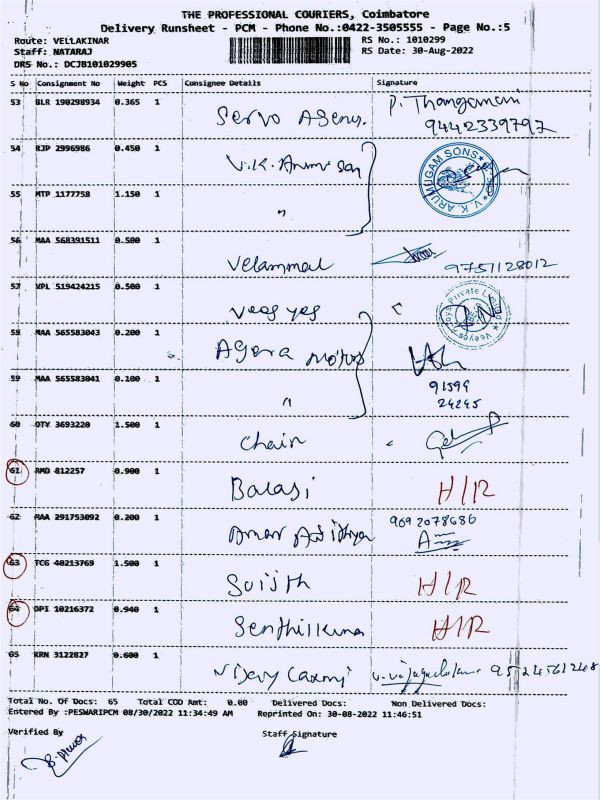 THE PROFESSIONAL COURIERS, Coimbatore
Delivery Runsheet - PCM - Phone No.:0422-3505555 - Page No.:5
Route: VELLAKINAR RS No.: 1010299
Staff: NATARAJ RS Date: 30-Aug-2022
DRS No.: DCJB101029905
S No Consignment No Weight PCS Consignee Details Signature
53 BLR 190298934 0.365 1 Servo Agency. P. Thangamani
9442339797
54 RJP 2996986 0.450 1 V.K. Arumugam V.K. ARUMUGAM SONS
55 MTP 1177758 1.150 1 "
56 MAA 568391511 0.500 1 Velammal 9751128012
57 VPL 519424215 0.500 1 Veeg yes Private
58 MAA 565583043 0.200 1 Agora Motors
59 MAA 565583041 0.100 1 " 91599
24245
60 OTY 3693220 1.500 1 Chain
61 RMD 812257 0.900 1 Balaji H/R
62 MAA 291753092 0.200 1 Amar Adidhya 9692078686
63 TCG 48213769 1.500 1 Sujith H/R
64 OPI 10216372 0.940 1 Senthilkumar H/R
65 KRN 3122827 0.600 1 Vijay Laxmi
Total No. Of Docs: 65 Total COD Amt: 0.00 Delivered Docs: Non Delivered Docs:
Entered By :PESWARIPCM 08/30/2022 11:34:49 AM Reprinted On: 30-08-2022 11:46:51
Verified By Staff Signature